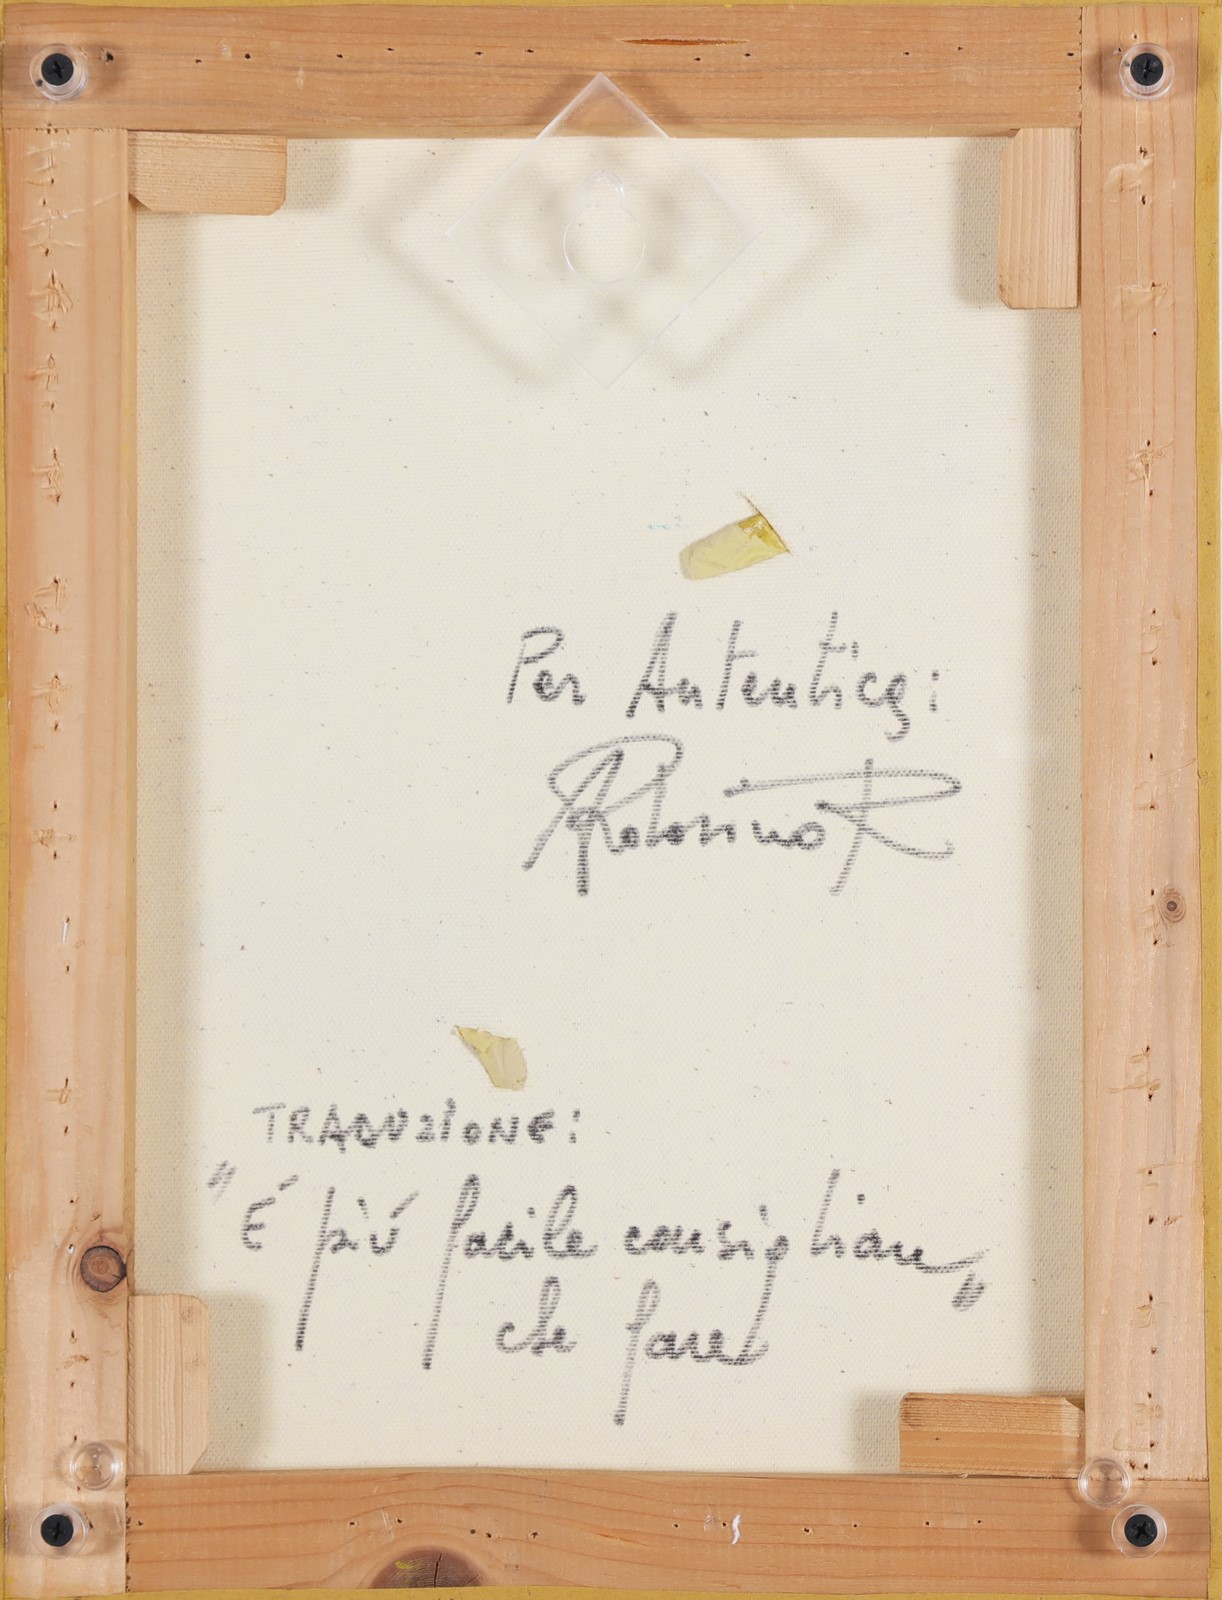 Per Autentica:
TRADUZIONE:
"É piú facile consigliare
che fare"